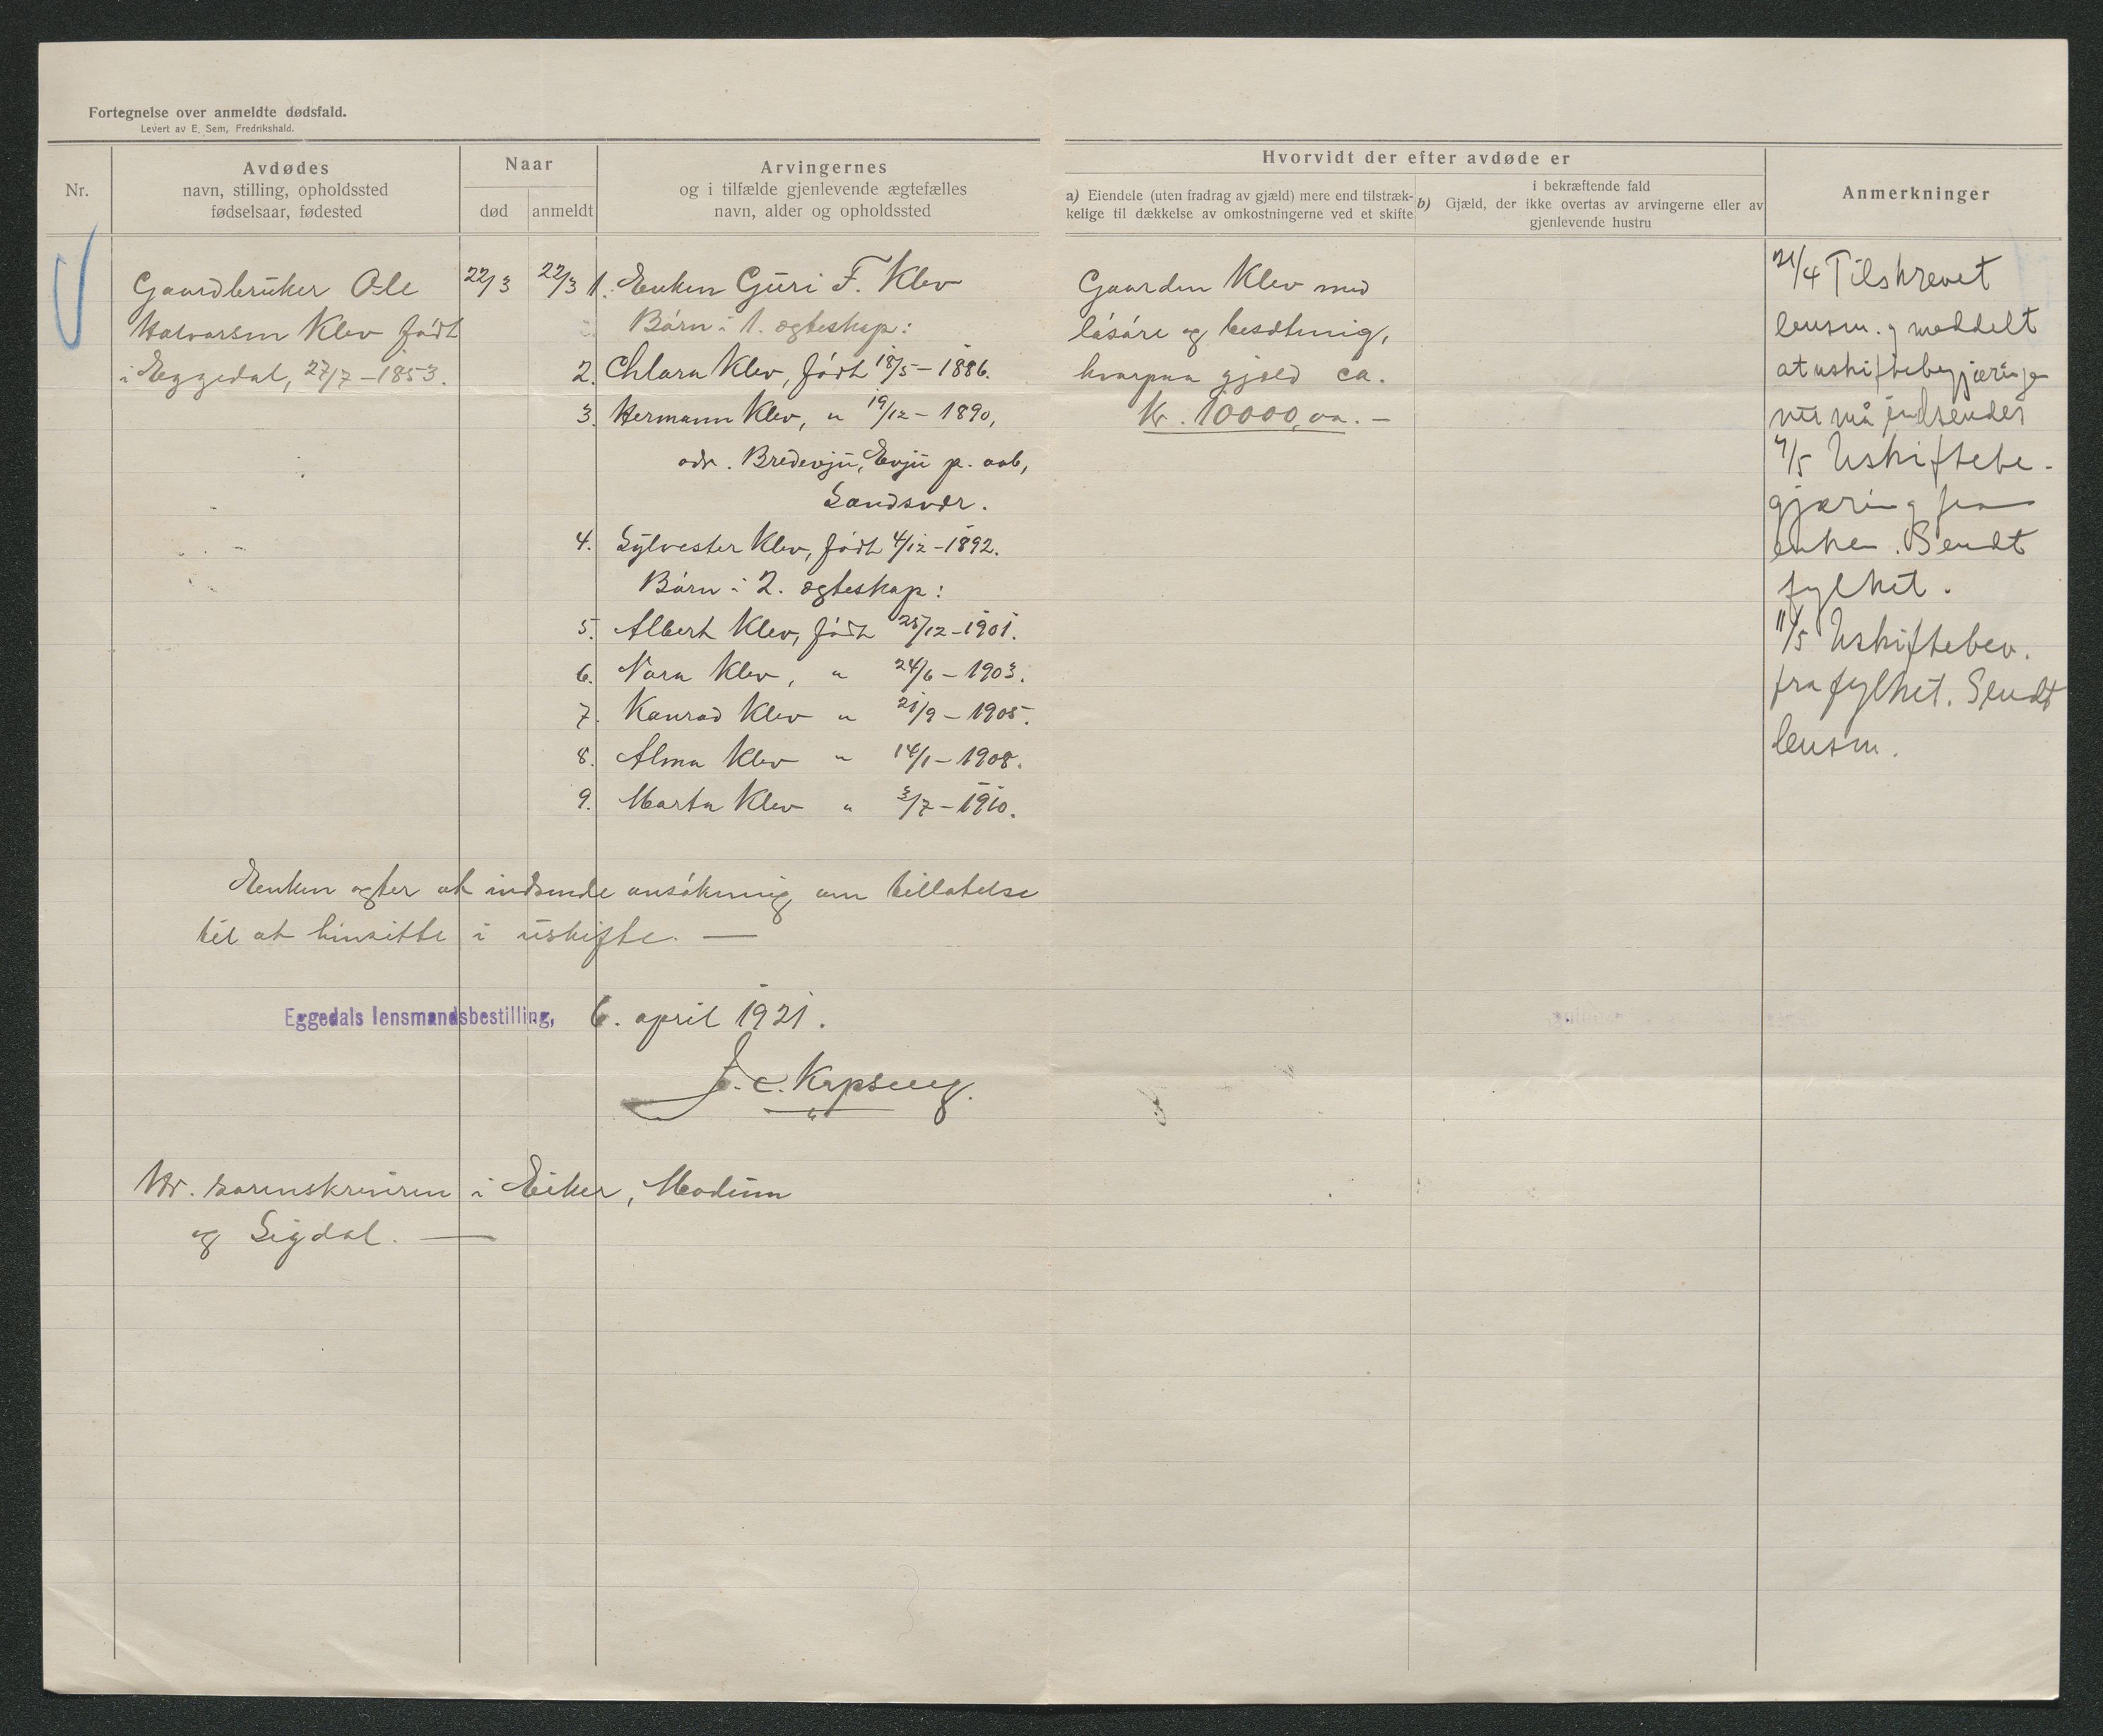 Fortegnelse over anmeldte dødsfald.
Levert av E. Sem, Fredrikshald.
Nr.
Avdødes
navn, stilling, opholdssted
fødselsaar, fødested
Naar
død
anmeldt
Arvingernes
og i tilfælde gjenlevende ægtefælles
navn, alder og opholdssted
Hvorvidt der efter avdøde er
a) Eiendele (uten fradrag av gjæld) mere end tilstræk-
kelige til dækkelse av omkostningerne ved et skifte
i bekræftende fald
b) Gjæld, der ikke overtas av arvingerne eller av
gjenlevende hustru
Anmerkninger
Gaardbruker Ole
Halvorsen Klev født
i Eggedal, 27/7 - 1853.
22/3
22/3
1. Enken Guri F. Klev
Børn i 1. ægteskap:
2. Chlara Klev, født 18/5 - 1886.
3. Hermann Klev, " 19/12 - 1890,
adr. Bredevju, Evju p. aab,
Sandsvær.
4. Sylvester Klev, født 4/12 - 1892.
Børn i 2. ægteskap:
5. Albert Klev, født 25/12 - 1901.
6. Nora Klev, " 24/6 - 1903.
7. Konrad Klev " 21/9 - 1905.
8. Alma Klev " 14/1 - 1908.
9. Marta Klev " 3/7 - 1910.
Gaarden Klev med
løsøre og besætning,
hvorpaa gjæld ca.
Kr. 10000,00. -
21/4 Tilskrevet
lensm. og meddelt
at uskiftebegjæringen
nu må indsendes
4/5 Uskiftebe-
gjæring fra
enken. Sendt
fylket.
11/5 Uskiftebev.
fra fylket. Sendt
lensm.
Enken agter at indsende ansøkning om tillatelse
til at hensitte i uskifte. -
Eggedals lensmandsbestilling, 6. april 1921.
J. C. Kopseng.
Hr. sorenskriveren i Eiker, Modum
og Sigdal. -